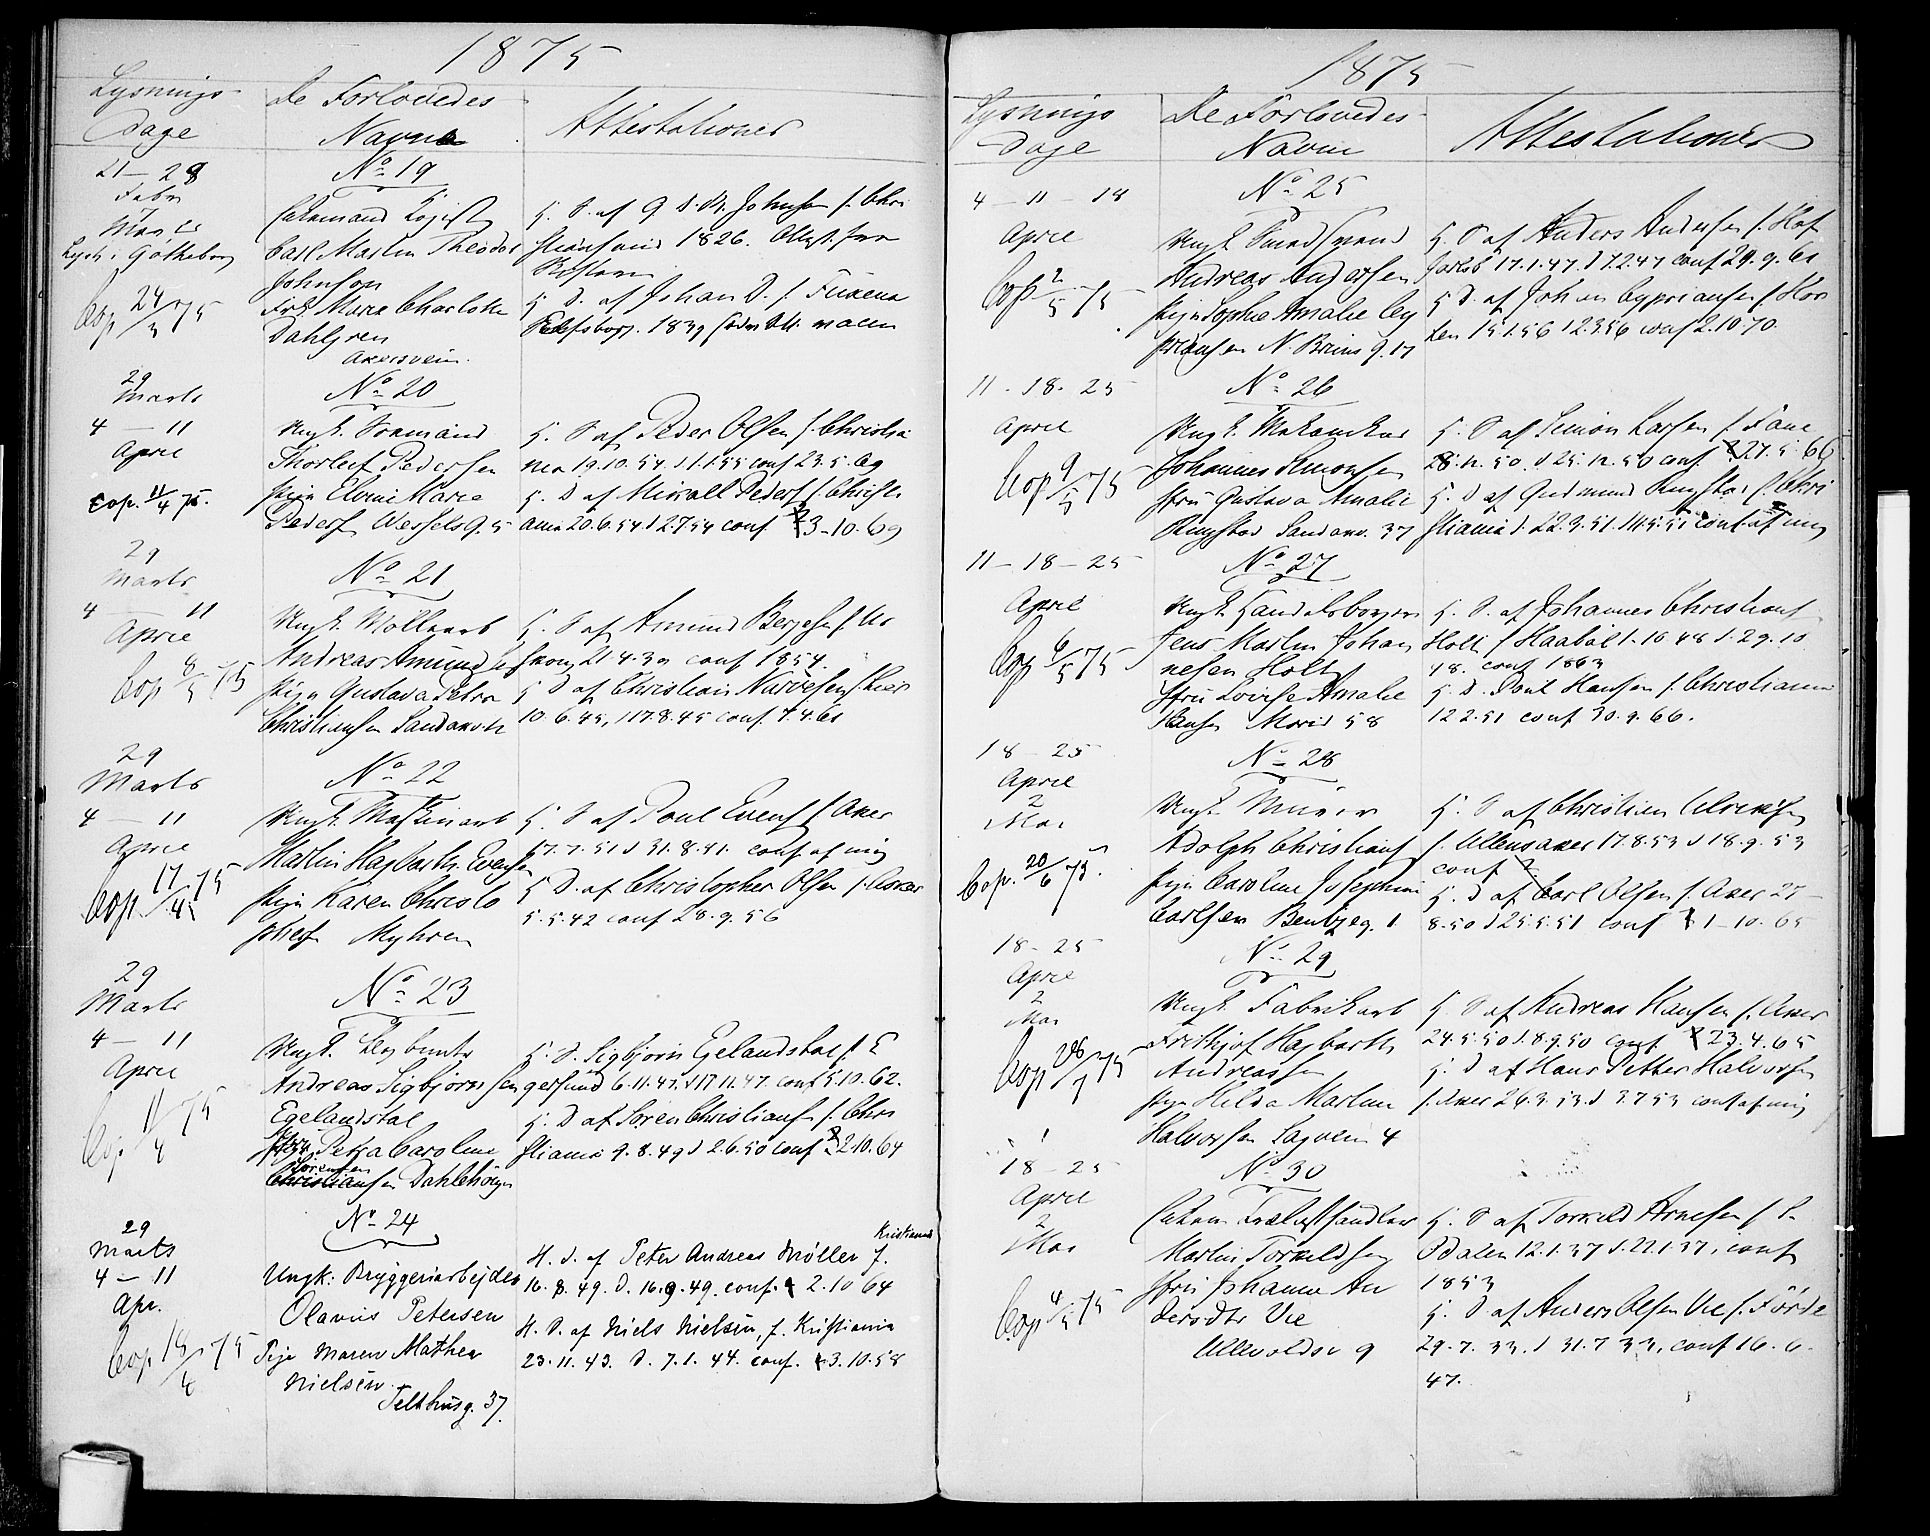 1875
Lysnings
Dage
De Forlovedes
Navne
Attestationer
21 - 28
Febr
Marts
Lyst i Gøtheborg
Cop 24/3 75
No 19
Carl Martin Theodor
Johnson
Frk Maria Charlotte
Dahlgren
Akersvein.
H. S. af G J. M. Johnsen f. Chri
stiansund 1826. Attest. fra
H D. af Johan D. f.
1839
29
Marts
4 - 11
April
Cop. 11/4 75.
No 20
Ungk. Sømand
Thorleif Pedersen
Pige Elvine Marie
Peders Wesselsg. 5
H. S af Peder Olsen f. Christia
nia 19.10.54 d 1.1.55 conf 23.5.69
H. D af Mikkall Peders f. Christi
ania 20.6.54 d 2.7 54 conf 3-10.69
29
Marts
4 - 11
April
Cop 8/5 75
No 21
Ungk. Møllearb
Andreas Amunds
Pige Gustava Petra
Christiansen Sandakerv
H. S af Amund f
21.4.39 conf 1854.
H D af Christian
10.6.45, d 17.8.45 conf 7.4.61
29
Marts
4 - 11
April
Cop. 17/4 75
No 22
Ungk. Maskinarb
Martin Hagbarth Evensen
Pige Karen Christo
phers Myhren
H. S af Poul Evens f Aker
17.7.51 d 31.8.51. conf af mig
H D. af Christopher Olsen f. Asker
5.5.42 conf 28.9.56
29
Marts
4 - 11
April
Cop 11/4 75
No 23
Ungk.
Andreas Sigbjørnsen
Egelandsdal
Petra Caroline
Sørensen
Christiansen Dahlehougen
H. S. Sigbjørn Egelandsdal f. E
gersund 6.11.47. d 17 11.47. conf 5.10.62.
H. D af Søren Christiansen f. Chri
stiania 9.8.49 d 2.6.50 conf 2.10.64
29
Marts
4 - 11
Apr.
Cop 18/4 75
No 24
Ungk: Bryggeriarbejder
Olavus Petersen
Pige Maren Mathea
Nielsen
Telthusg. 37.
Kristiania
H. S. af Peter Andreas Møller f.
16.8.49. d. 16.9.49. conf. 2.10 64
H. D. af Niels Nielsen, f. Kristiania
23.11.43. d. 7.1.44. conf. 3.10.58
1875
Lysnings
Dage
De Forlovedes
Navne
Attestationer
4 - 11 - 18
April
Cop 2/5 75
No 25
Ungk Smedsvend
Andreas Andersen
Pige Sophie Amalie Cy
priansen N. Bruns g. 17
H. S af Anders Andersen f. Haf
17.1.47. d 7.2.47 conf 29.9.61
H D. af Johan Cypriansen f. Hor
ten 15.1.56 d 2.3.56 conf 2.10.70.
11 - 18 - 25
April
Cop 9/5 75
No 26
Ungk. Mekanikus
Johannes Simonsen
Fru Gustava Amalie
Ringstad Sandakv. 37
H. S af Simon Larsen f. Fane
28.12.50. d 25.12.50 conf 27.5.66
H. D af Gudmund Ringstad f. Chri
stiania d. 22.3.51. conf af mig
11 - 18 - 25
April
Cop 6/5 75
No 27
Ungk. Handelsborger
Jens Martin Johan
nesen Holt
Fru Lovise Amalie
Hansen Morid 58
H. S. af Johannes Christians
Holt f Haabøl 1.10 48 d. 29.10
48. conf 1863
H. D. Poul Hansen f. Christiania
12 2.51 conf 30.9.66.
18 - 25
April
2
Mai
Cop. 20/6 75.
No 28
Ungk Murer
Adolph Christians
Pige Caroline Josephine
Carlsen Bentzeg. 1
H. S af Christian Ulriksen
f. Ullensaker 17.8.53 d 18.9.53
conf
H. D af Carl Olsen f. Aker 27
8.50 d 25.5.51 conf 1-10.65
18 - 25
April
2
Mai
Cop 28/7 75
No 29
Ungk Fabrikarb
Frithjof Hagbarth
Andreassen
Pige Hilda Martine
Halvorsen Sagvein 4
H. S af Andreas Hansen f. Aker
24.5.50 d. 8.9.50 conf 23.4.65
H. D af Hans Petter Halvorsen
f. Aker 26.3.53. d 3.7 53 conf af mig
18 - 25
April
2
Mai
Cop 4/5 75
No 30
Martin Torkildsen
Fru Johanne An
dersdtr Vie
Ullevoldsv 9
H. S af Torkild Arnesen f S.
Odalen 12.1.37 d. 22.1.37. conf
1853
H. D af Anders Olsen Vie f. Førde
29.7.33. d 31.7 33. conf 16.6.
47.